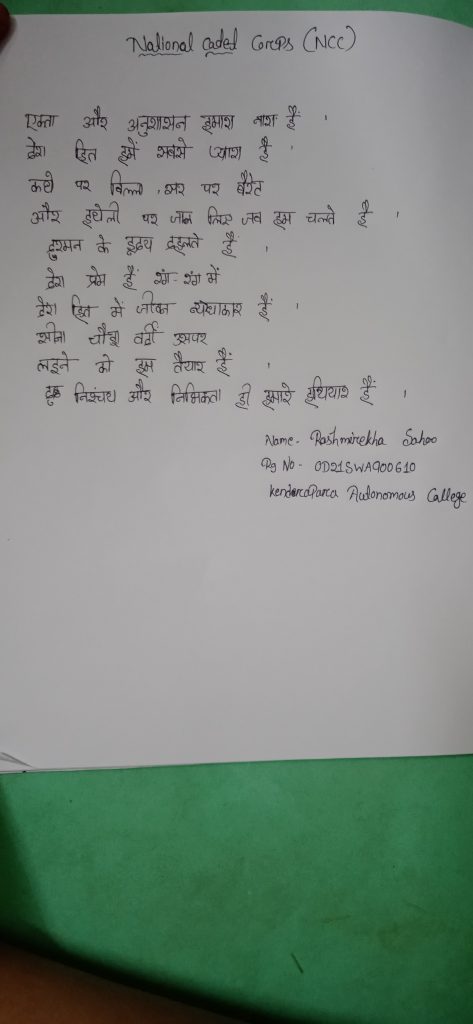 National Caded Corps (NCC)
एकता और अनुशासन हमारा नारा हैं ।
देश हित हमें सबसे प्यारा हैं ।
कधो पर बिल्ला, सर पर बैरेट
और हथेली पर जान लिए जब हम चलते हैं ।
दुश्मन के हृदय दहलते हैं ।
देश प्रेम हैं रंग-रंग में
देश हित में जीवन न्योछाकार हैं ।
सीना चौड़ा वर्दी उसपर
लड़ने को हम तैयार हैं ।
दृढ़ निश्चय और निभिकता ही हमारे हथियार हैं ।
Name- Rashmirekha Sahoo
Rg No- OD21SWA900610
kendaraParca Autonomous College